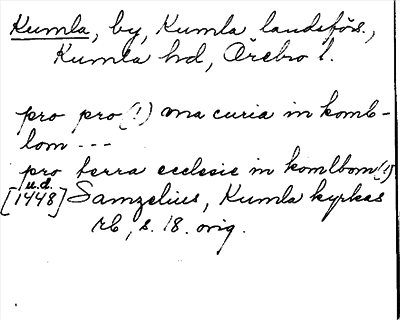 Kumla, by, Kumla landsförs.,
Kumla hd, Örebro l.
pro pro (!) ma curia in komb-
lom ---
pro terra ecclesie in komlbom (!)
u.d.
[1448] Samzelius, Kumla kyrkas
rb, s. 18. orig.